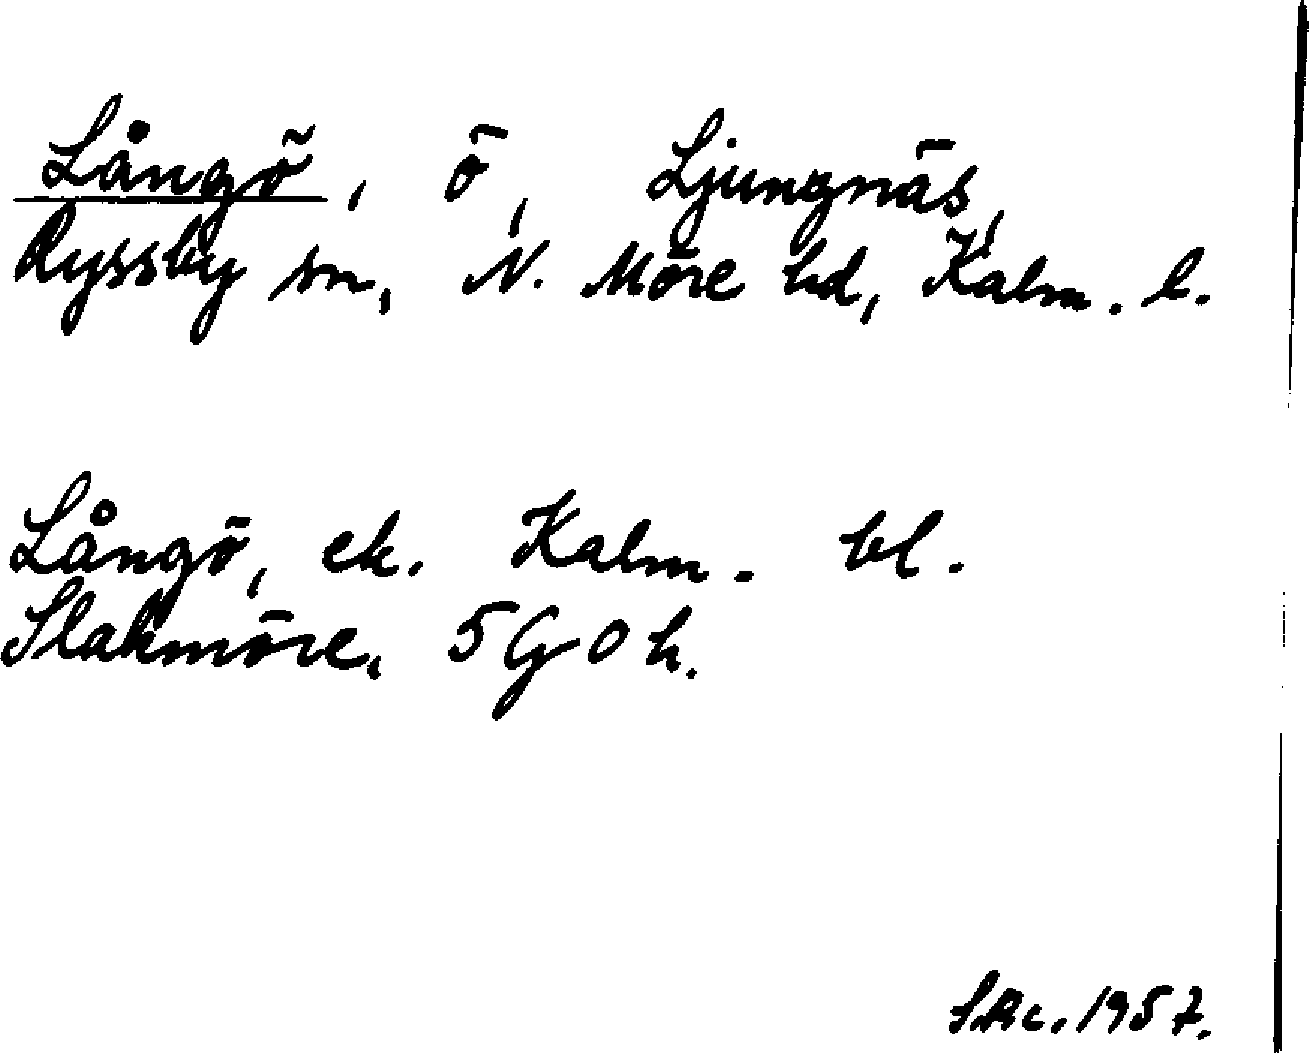 Långö, ö, Ljungnäs,
Ryssby sn, N. Möre hd, Kalm. l.
Långö, ek. Kalm. bl.
Slakmöre, 5 G 0 h.
1957.